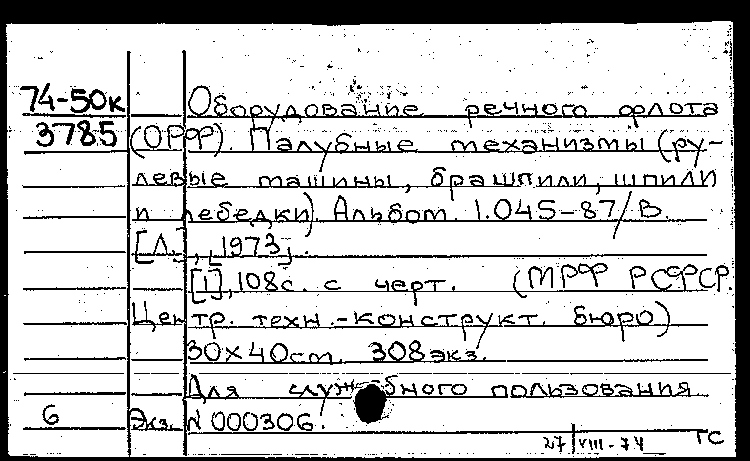 74-50к Оборудование речного флота
3785 (ОРФ). Палубные механизмы (ру-
левые машины, брашпили, шпили
и лебедки). Альбом. 1.045-87/В.
[Л.], 1973.
[1], 108с. с черт. (МРФ РСФСР.
Центр. техн.-конструкт. бюро)
30х40см. 308экз.
Для служебного пользования
6 Экз. N 000306.
27/VIII-74 ТС